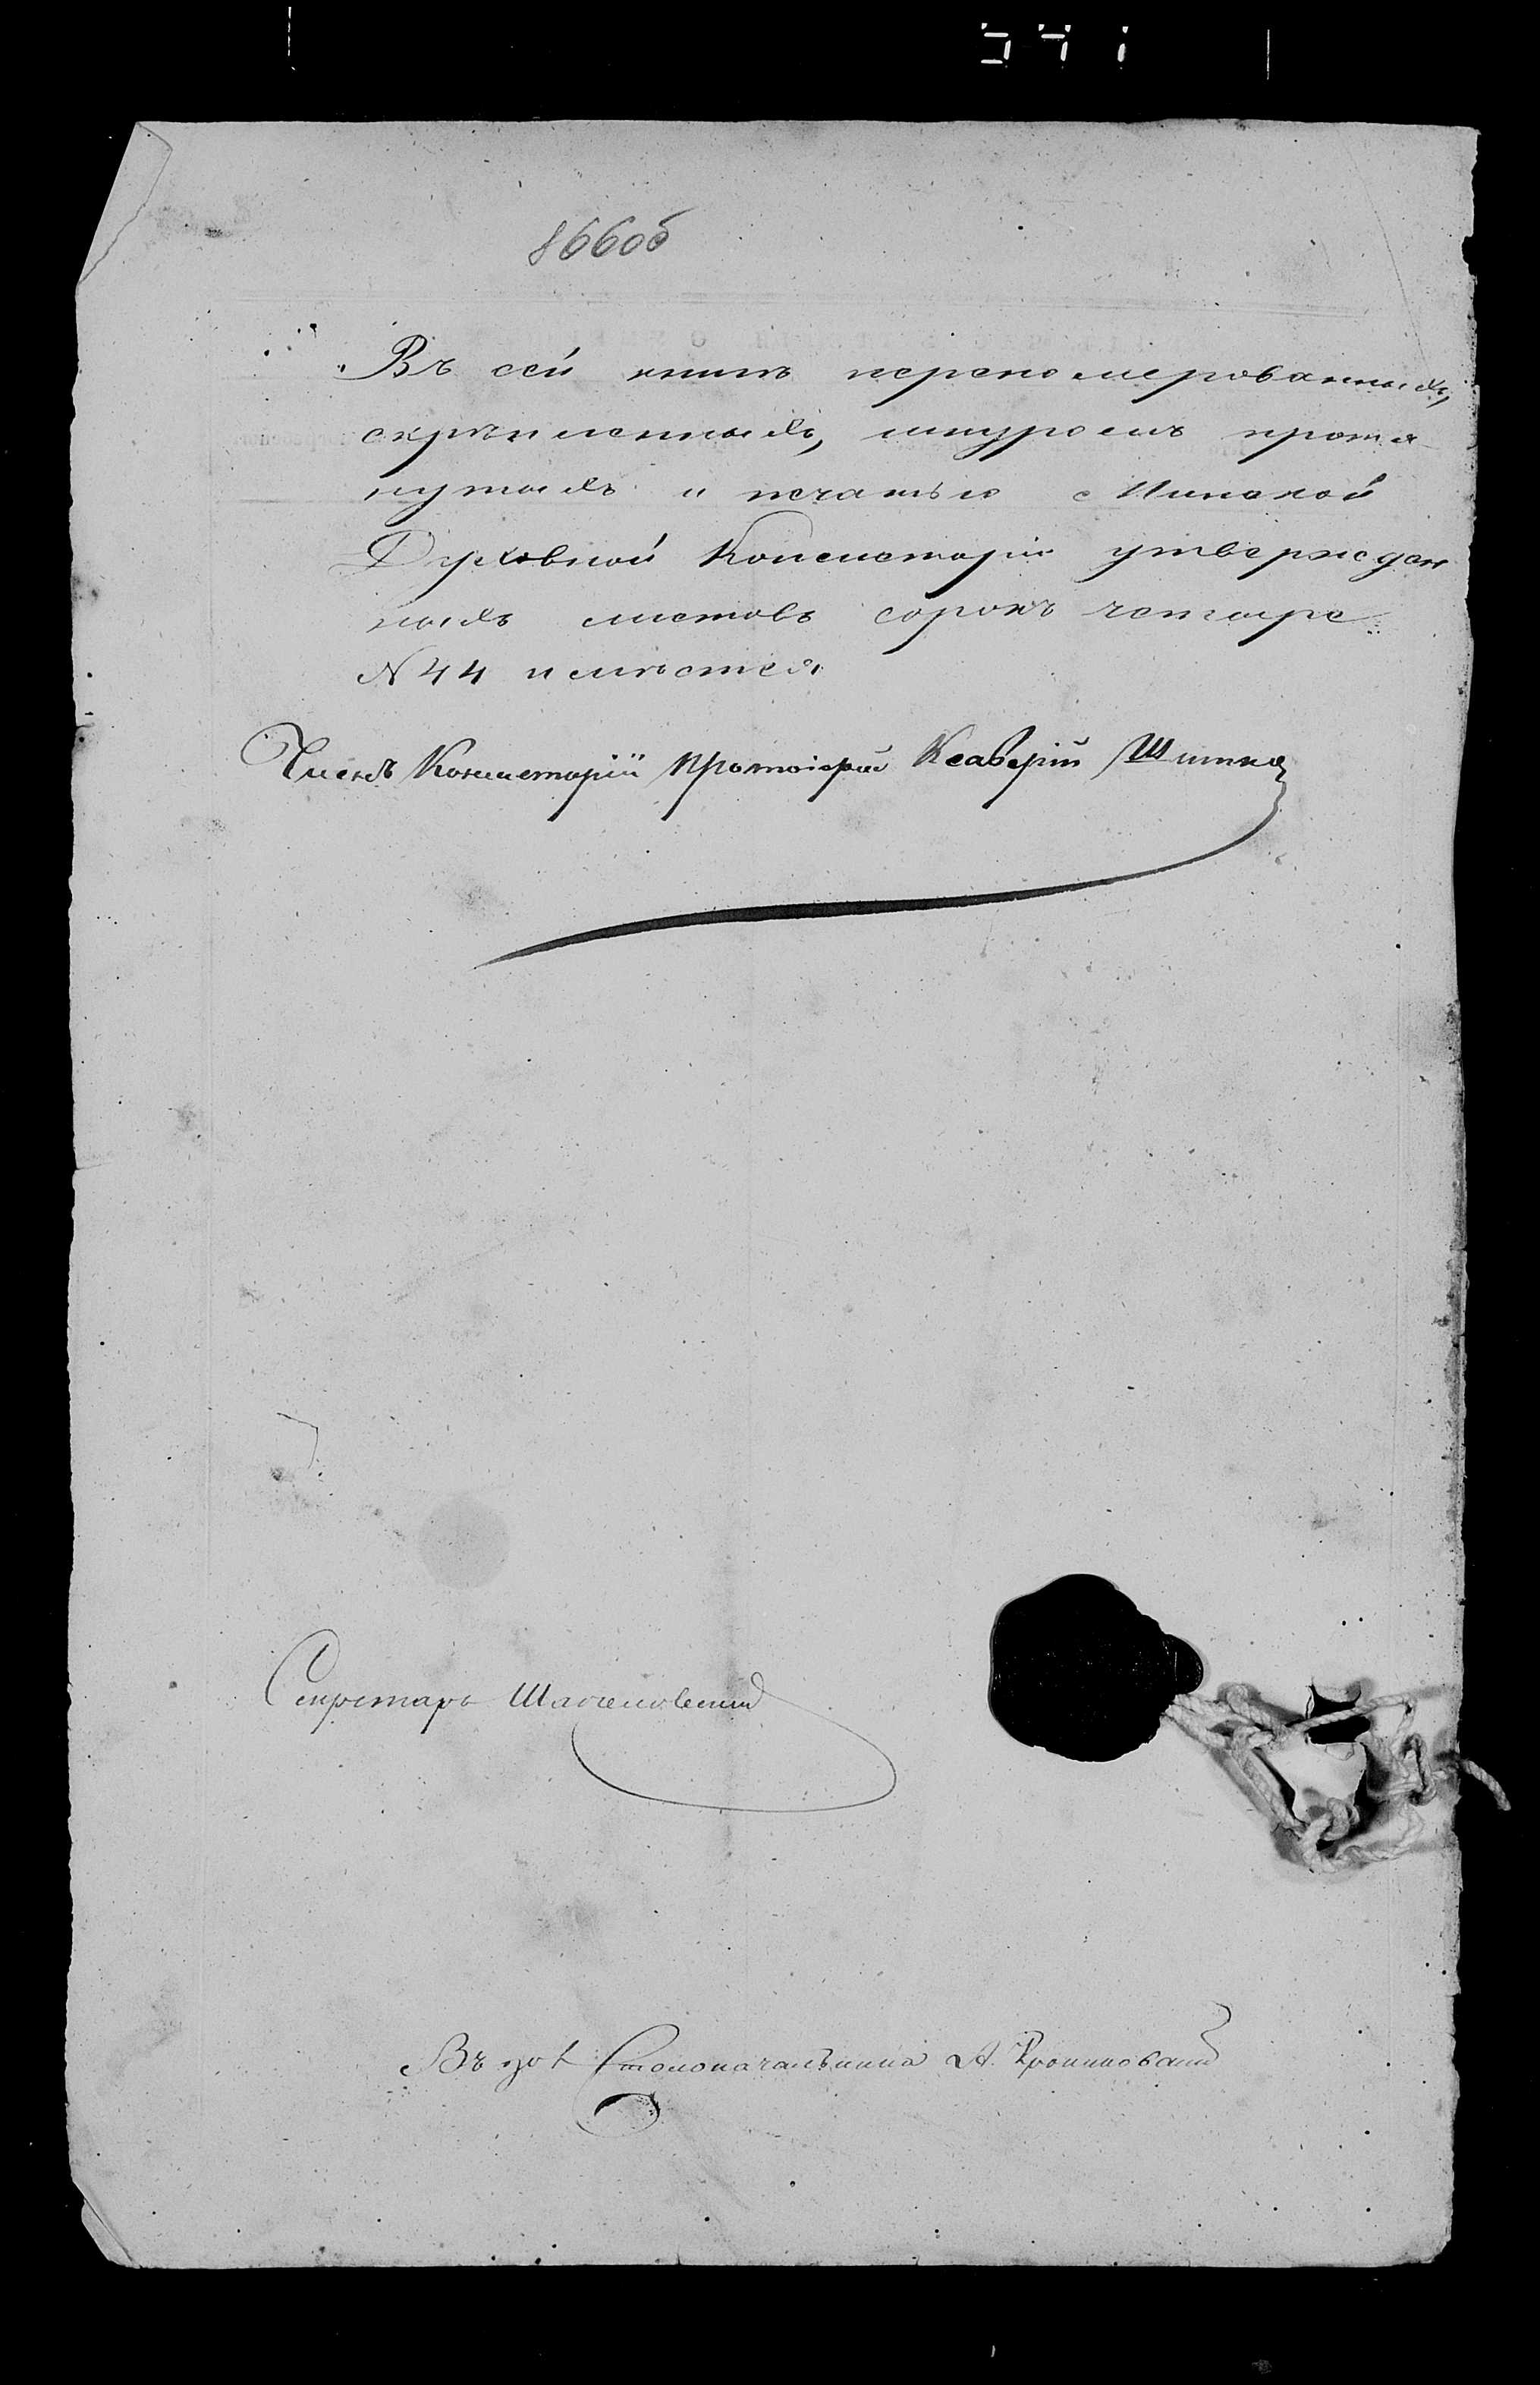 866об
Въ сей книгѣ перемерованныхъ,
скрѣпленныхъ, шнуромъ протя-
нутыхъ и печатью Минской
Духовной Консисторіи утвержден
ныхъ листовъ сорокъ четыре
N 44 имѣется
Членъ Консисторіи Протоіерей Ксаверій Шитко
Секретарь
Въ дол. Столоначальника А.